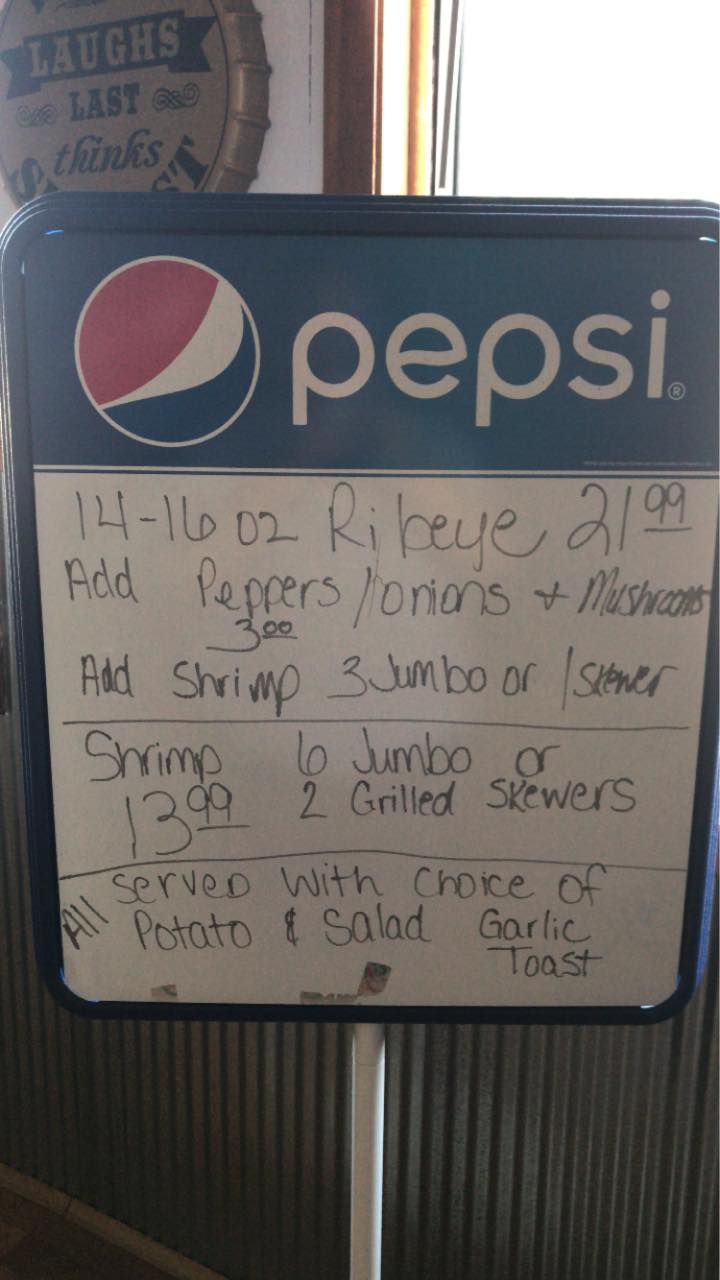 LAUGHS
LAST
thinks
pepsi®
14-16 oz Ribeye 21 99
Add Peppers / onions + Mushrooms
3 00
Add Shrimp 3 Jumbo or 1 Skewer
Shrimp 6 Jumbo or
13 99 2 Grilled Skewers
All served with choice of
Potato & Salad Garlic
Toast